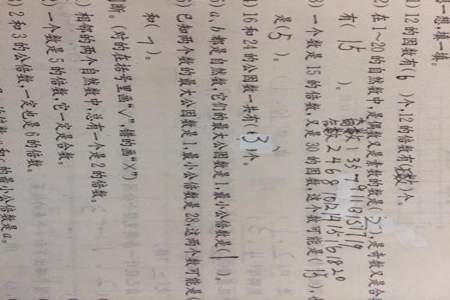 一想,填一填。
1)12的因数有(6)个,12的倍数有(无数)个。
2)在1~20的自然数中,是偶数又是素数的是(2),是奇数又是合
有 15 )。
倍数: 2 4 6 8 10 12 14 16 18 20
3)一个数是15的倍数,又是30的因数,这个数可能是(15),
是 5 )。
4)16和24的公因数一共有(3)个。
5)a、b都是自然数,它们的最大公因数是1,最小公倍数是( )。
6)已知两个数的最大公因数是1,最小公倍数是28,这两个数可能是(
和( 7 )。
(对的在括号里画“√”,错的画“×”)
)相邻的两个自然数中,总有一个是2的倍数。
)一个数是5的倍数,它一定是合数。
)2和3的公倍数,一定也是6的倍数。
的最小公倍数是a。